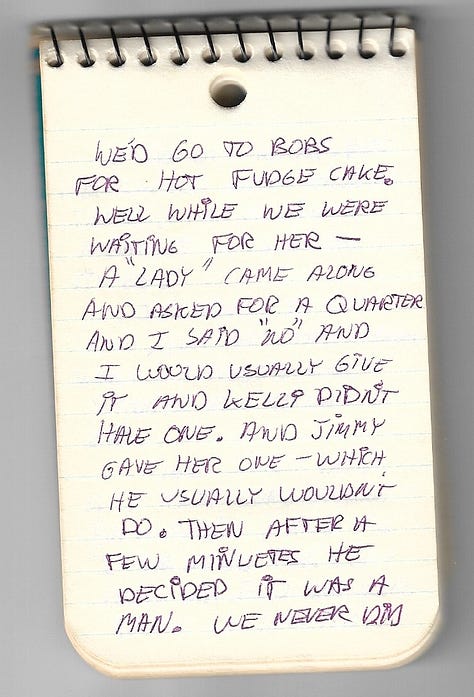 WE'D GO TO BOBS
FOR HOT FUDGE CAKE.
WELL WHILE WE WERE
WAITING FOR HER —
A "LADY" CAME ALONG
AND ASKED FOR A QUARTER
AND I SAID "NO" AND
I WOULD USUALLY GIVE
IT AND KELLY DIDN'T
HAVE ONE. AND JIMMY
GAVE HER ONE — WHICH
HE USUALLY WOULDN'T
DO. THEN AFTER A
FEW MINUETES HE
DECIDED IT WAS A
MAN. WE NEVER DID